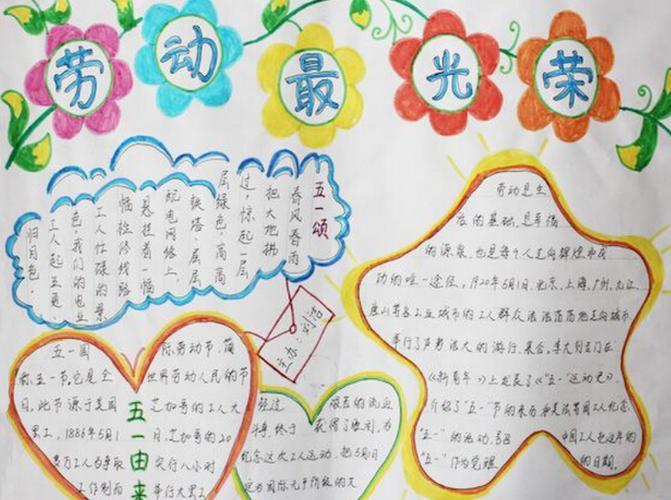 劳动最光荣
五一颂
春风春雨
把大地拂
过，惊起一层
层绿色，高高
铁塔，层层
悬挂着一幅
幅检修线路
工人忙碌的景
色，我们的电业
工人起五更，
主办：刘浩
五一国际劳动节，简
称五一节，它是全世界劳动人民的节
日，此节源于美国芝加哥的工人大
罢工，1886年5月1日，芝加哥的20
多万工人为争取实行八小时
工作制而举行大罢工
五一由来
经过
终于获得了胜利，为
纪念这次工人运动，把5月1日
定为国际
劳动是生
活的基础，是幸福
的源泉，也是每个人走向辉煌和成
功的唯一途径，1920年5月1日，北京、上海、广州、九江、
唐山等各工业城市的工人群众浩浩荡荡地走向城市，
举行了声势浩大的游行、集会，李大钊专门在
《新青年》上发表了《"五一"运动史》，
介绍了"五一"节的来历和美法等国工人纪念
"五一"的活动，号召中国工人把这年的
"五一"作为觉醒的日期。